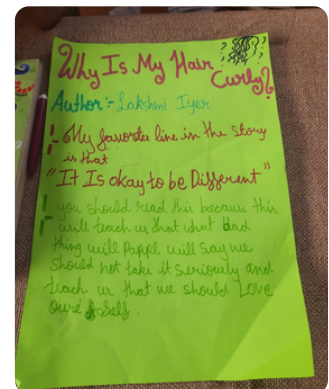 Why Is My Hair
Curly?
Author:- Lakshmi Iyer
!- My favorite line in the story
is that
"It Is okay to be Different"
!- you should read this because this
will teach us that what bad
thing will Pappl will say we
should not take it seriously and
teach us that we should Love
ours self.